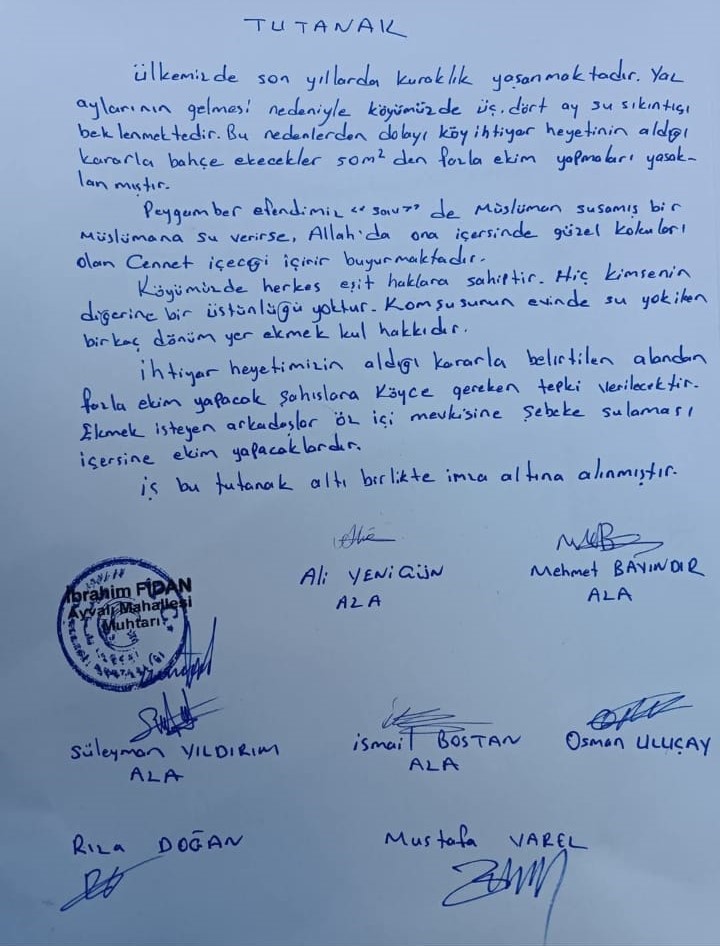 TUTANAK
ülkemizde son yıllarda kuraklık yaşanmaktadır. Yaz
aylarının gelmesi nedeniyle köyümüzde üç. dört ay su sıkıntısı
beklenmektedir. Bu nedenlerden dolayı köy ihtiyar heyetinin aldığı
kararla bahçe ekecekler 50m² den fazla ekim yapmaları yasak-
lanmıştır.
Peygamber efendimiz "sav" de Müslüman susamış bir
Müslümana su verirse, Allah'da ona içersinde güzel kokuları
olan Cennet içeceği içirir buyurmaktadır.
Köyümüzde herkes eşit haklara sahiptir. Hiç kimsenin
diğerine bir üstünlüğü yoktur. Komşusunun evinde su yokiken
birkaç dönüm yer ekmek kul hakkıdır.
ihtiyar heyetimizin aldığı kararla belirtilen alandan
fazla ekim yapacak şahıslara Köyce gereken tepki verilecektir.
Ekmek isteyen arkadaşlar öz içi mevkisine şebeke sulaması
içersine ekim yapacaklardır.
iş bu tutanak altı birlikte imza altına alınmıştır.
Ali YENİGÜN
AZA
Mehmet BAYINDIR
AZA
İbrahim FİDAN
Ayvalı Mahallesi
Muhtarı
Süleyman YILDIRIM
AZA
ismail BOSTAN
AZA
Osman ULUÇAY
Rıza DOĞAN
Mustafa VAREL